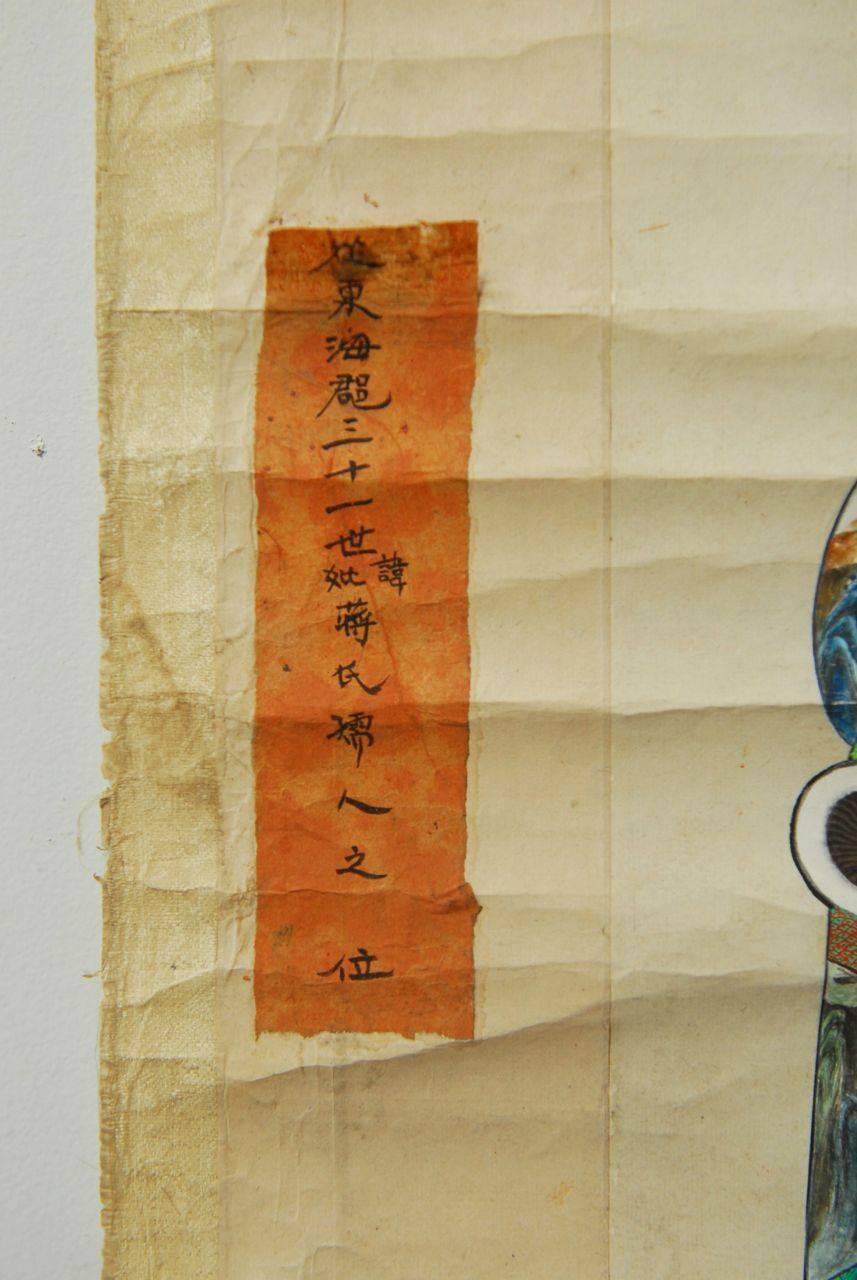 從東海郡三十一世妣諱蔣氏孺人之位